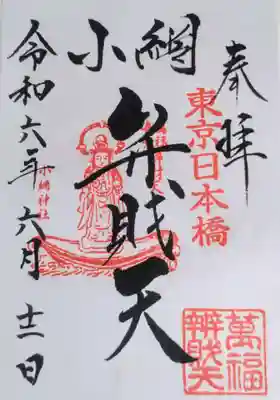 奉拝
東京日本橋
萬福
辨財天
小網
弁財天
小網神社
令和六年六月十二日